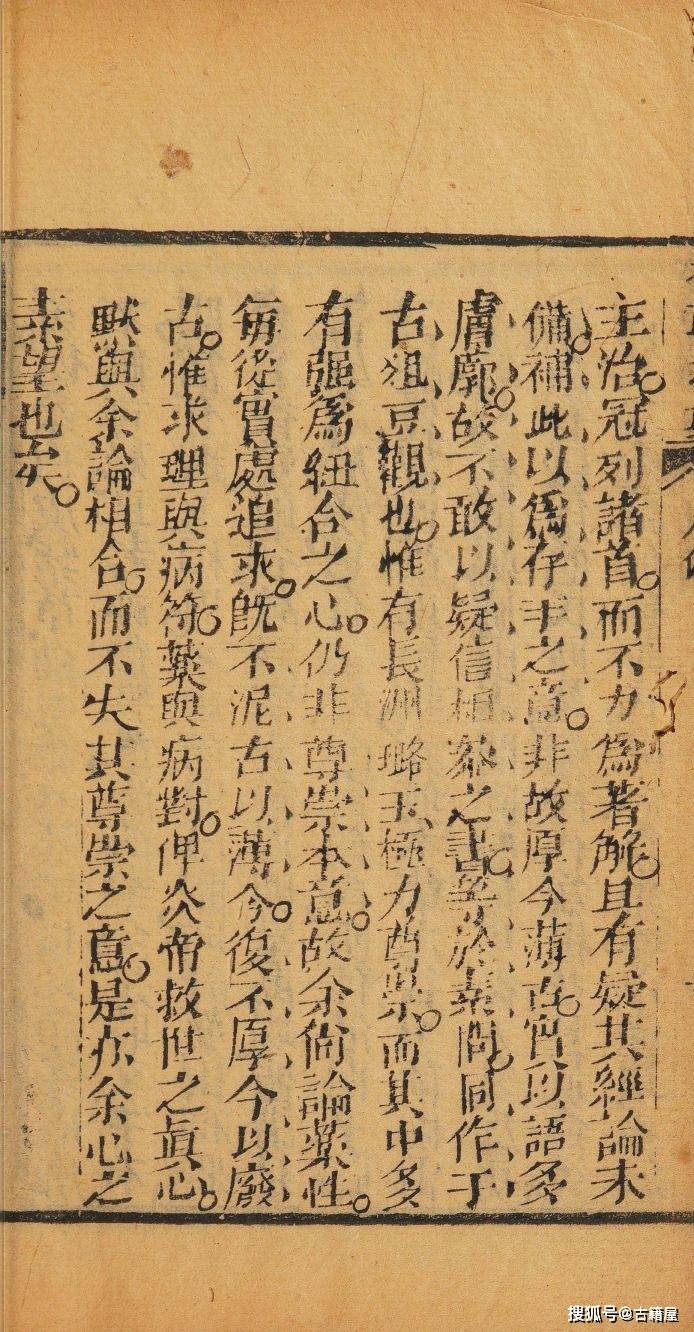 主治。冠列諸首。而不力為著解。且有疑其經論未
備。補此以為存羊之意。非故厚今薄古。實以語多
膚廓。故不敢以疑信相參之書。等於素問。同作千
古俎豆觀也。惟有長洲璐玉極力尊崇。而其中多
有強為紐合之心。仍非尊崇本意。故余尚論藥性。
每從實處追求。既不泥古以薄今。復不厚今以廢
古。惟求理與病符。藥與病對。俾炎帝救世之真心。
默與余論相合。而不失其尊崇之意。是亦余心之
素望也矣。
搜狐号@古籍屋